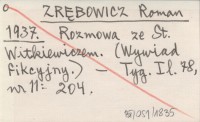 ZRĘBOWICZ Roman
1937. Rozmowa ze St.
Witkiewiczem. (Wywiad
Fikcyjny.) — Tyg. Il. 78,
nr 11: 204.